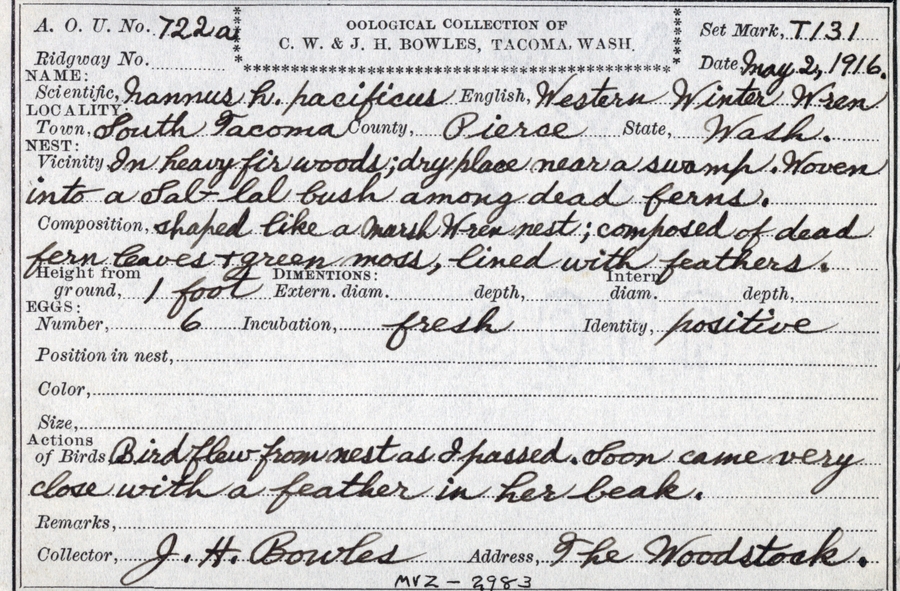 A. O. U. No. 722a
OOLOGICAL COLLECTION OF
C. W. & J. H. BOWLES, TACOMA, WASH.
Set Mark, T131
Ridgway No.
Date, May 2, 1916.
NAME:
Scientific, Nannus h. pacificus English, Western Winter Wren
LOCALITY:
Town, South Tacoma County, Pierce State, Wash.
NEST:
Vicinity In heavy fir woods; dry place near a swamp. Woven
into a Sal-lal bush among dead ferns.
Composition, shaped like a Marsh Wren nest; composed of dead
fern leaves + green moss, lined with feathers.
Height from ground, 1 foot DIMENTIONS: Extern. diam. depth, Intern diam. depth,
EGGS:
Number, 6 Incubation, fresh Identity, positive
Position in nest,
Color,
Size,
Actions of Birds Bird flew from nest as I passed. Soon came very
close with a feather in her beak.
Remarks,
Collector, J. H. Bowles Address, The Woodstock.
MVZ - 2983